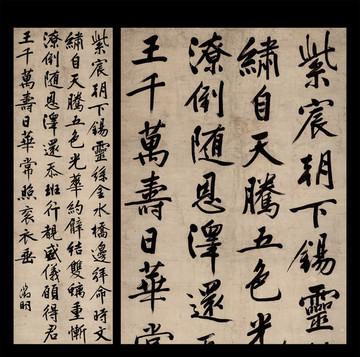 紫宸朝下錫靈絲金水橋邊拜命時文
繡自天騰五色光華約臂結雙螭重慚
潦倒隨恩澤還忝班行覩盛儀願得君
王千萬壽日華常照袞衣垂
徵明
紫宸朝下錫靈
繡自天騰五色光
潦倒隨恩澤還
王千萬壽日華常